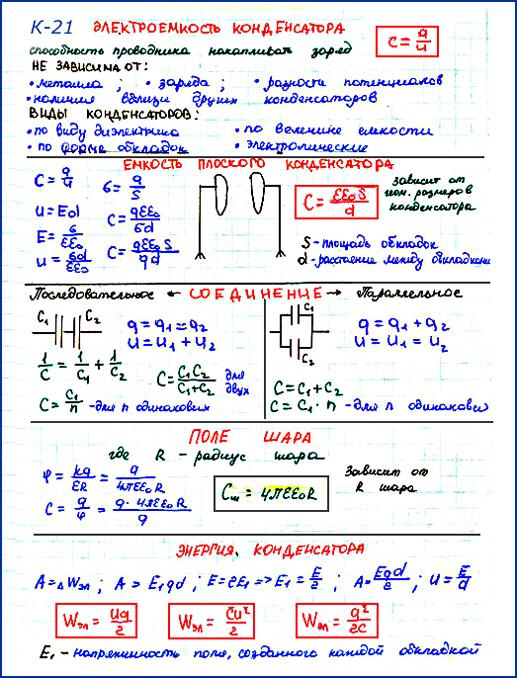 К-21 ЭЛЕКТРОЕМКОСТЬ КОНДЕНСАТОРА
способность проводника накапливать заряд
C = q/u
НЕ ЗАВИСИМА ОТ:
• металла ; • заряда ; • разности потенциалов
• наличия вблизи других конденсаторов
ВИДЫ КОНДЕНСАТОРОВ:
• по виду диэлектрика • по величине емкости
• по форме обкладок • электролические
ЕМКОСТЬ ПЛОСКОГО КОНДЕНСАТОРА
C = q/u б = q/S
u = Ed C = qεε₀/бd
E = б/εε₀ C = qεε₀S/qd
u = бd/εε₀
C = εε₀S/d
зависит от
геом. размеров
конденсатора
S - площадь обкладок
d - расстояние между обкладками
Последовательное ← СОЕДИНЕНИЕ → Параллельное
C₁ C₂
q = q₁ = q₂
u = u₁ + u₂
1/C = 1/C₁ + 1/C₂
C = C₁C₂/C₁+C₂ для двух
C = C₁/n - для n одинаковых
C₁
C₂
q = q₁ + q₂
u = u₁ = u₂
C = C₁ + C₂
C = C₁ · n - для n одинаковых
ПОЛЕ ШАРА
где R - радиус шара
φ = kq/εR = q/4πεε₀R
C = q/φ = q·4πεε₀R/q
Cш = 4πεε₀R
Зависит от
R шара
ЭНЕРГИЯ КОНДЕНСАТОРА
A = ΔWэл ; A = E₁qd ; E = 2E₁ => E₁ = E/2 ; A = Eqd/2 ; u = E/d
Wэл = uq/2 Wэл = Cu²/2 Wэл = q²/2C
E₁ - напряженность поля, созданного каждой обкладкой